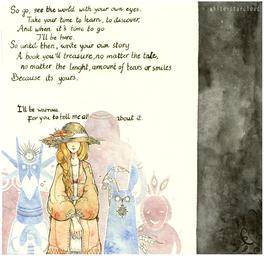 So go, see the world with your own eyes.
Take your time to learn, to discover,
And when it's time to go
I'll be here.
So until then, write your own story
A book you'll treasure, no matter the tale,
no matter the lenght, amount of tears or smiles
Because its yours.
I'll be waiting
for you to tell me all about it.